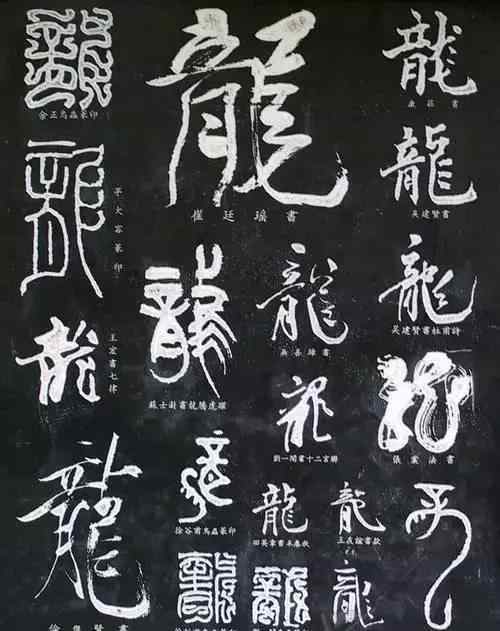 龍
余正鳥蟲篆印
龍
崔廷瑶書
龍
康莊書
龍
吳建賢書
龍
篆印
龍
蘇士澍書龍騰虎躍
龍
書
龍
吳建賢書杜甫詩
龍
書七律
龍
劉一聞書十二言聯
龍
法書
龍
書
龍
徐谷甫鳥蟲篆印
龍
田英章書
龍
王友誼書款
龍
龍
龍
龍